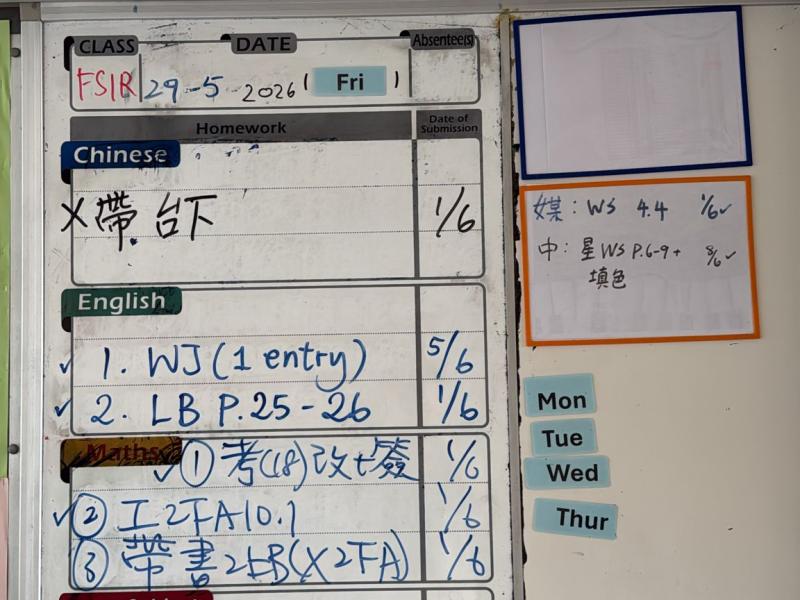 CLASS DATE Absentee(s)
FSIR 29-5 2026 ( Fri )
Homework Date of Submission
Chinese
X 帶 台下 1/6
English
✓ 1. WJ (1 entry) 5/6
✓ 2. LB P.25-26 1/6
Maths ✓ ① 考(18)改+簽 1/6
✓ ② 工2下A10.1 1/6
③ 帶書2上B(X2下A) 1/6
媒: WS 4.4 1/6✓
中: 星WS P.6-9+ 8/6✓
填色
Mon
Tue
Wed
Thur